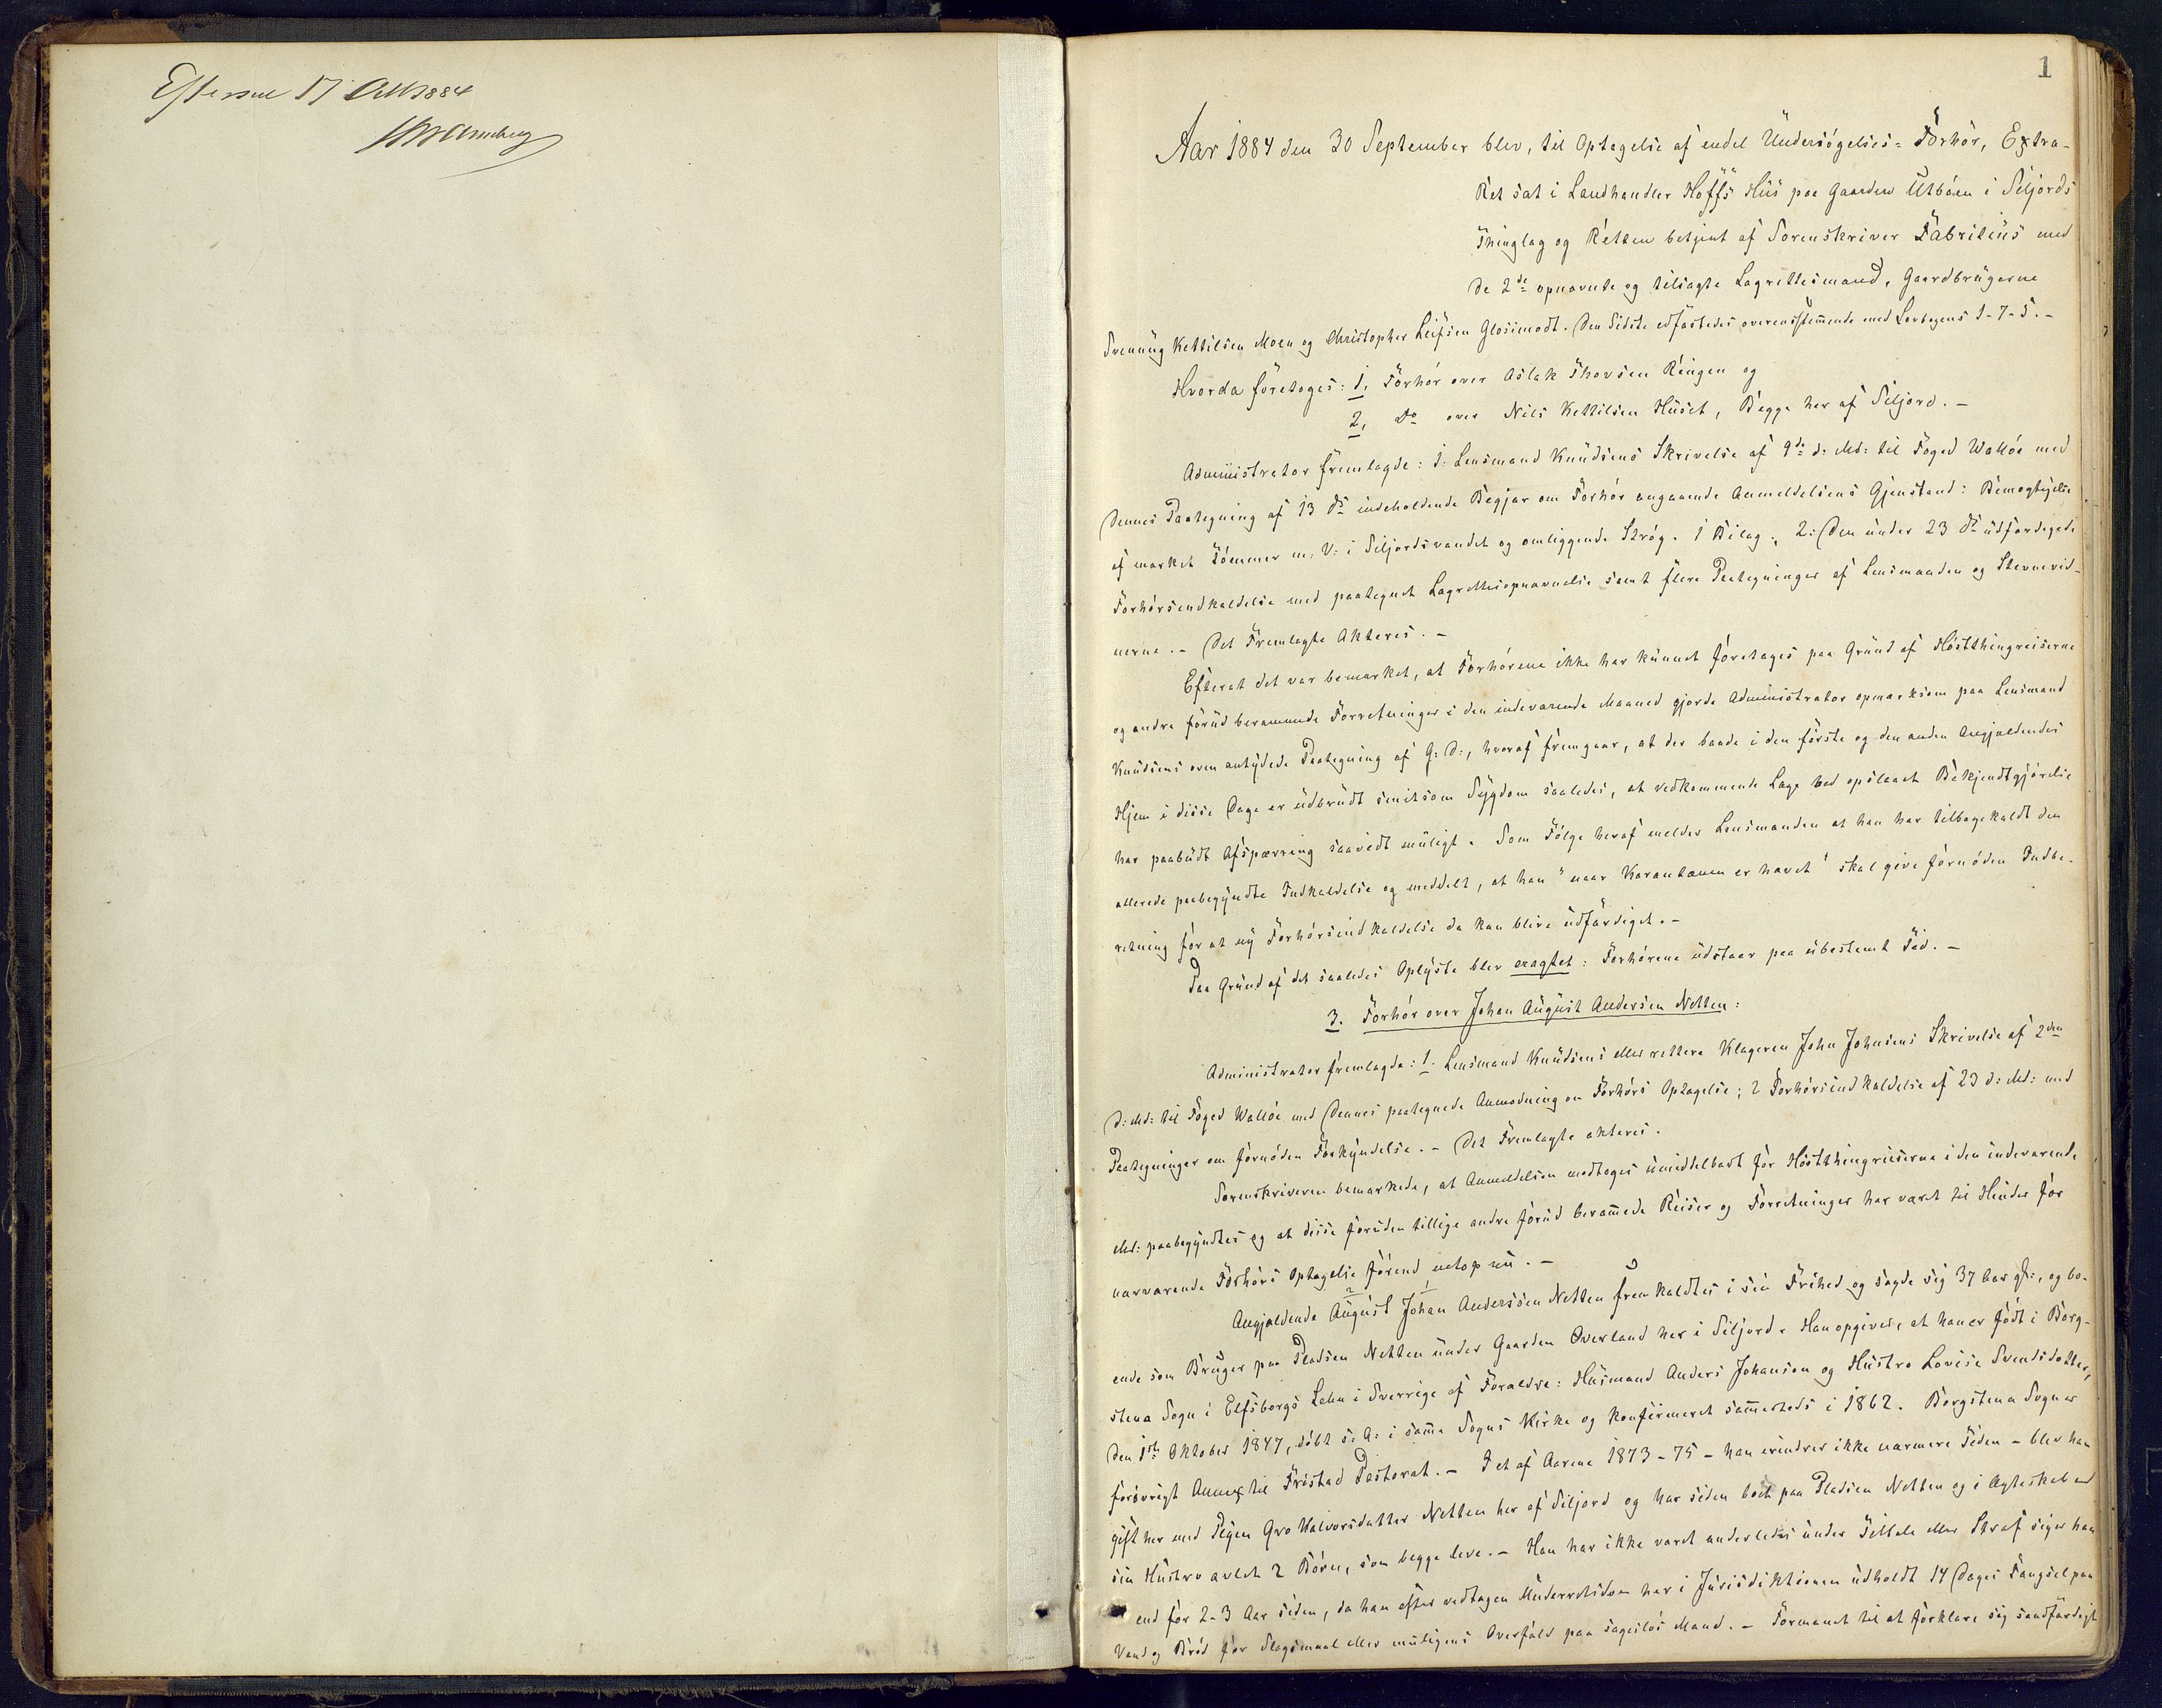 Efterseet 17 Oktb 1884
1
Aar 1884 den 30 September blev, til Optagelse af endel Undersøgelses-Forhør, Extra-
Ret sat i Landhandler Hoffs Hus paa Gaarden Utbøen i Siljords
Thinglag og Retten betjent af Sorenskriver Fabritius med
de 2de opnævnte og tilsagte Lagrettesmænd, Gaardbrugerne
Svenung Kettilsen Moen og Christopher Leifsen Glosimodt. Den Sidste edfæstedes overensstemmende med Lovbogens 1-7-5.-
Hvorda foretoges: 1, Forhør over Aslak Thovsen Ringen og
2, Do over Nils Kettilsen Huset, Begge her af Siljord.-
Administrator fremlagde: 1: Lensmand Knudsens Skrivelse af 9de d: Md: til Foged Walløe med
Dennes Paategning af 13 ds indeholdende Begjær om Forhør angaaende Anmeldelsens Gjenstand: Bemægtigelse
af mærket Tømmer m: V: i Siljordsvandet og omliggende Strøg. 1 Bilag; 2: Den under 23 ds udfærdigede
Forhørsindkaldelse med paategnet Lagrettesopnævnelse samt flere Paategninger af Lensmanden og Stevnevid-
nerne.- Det Fremlagte Akteres.-
Efterat det var bemærket, at Forhørene ikke har kunnet foretages paa Grund af Høstthingreiserne
og andre forud berammede Forretninger i den indeværende Maaned gjorde Administrator opmærksom paa Lensmand
Knudsens oven antydede Paategning af G: D:, hvoraf fremgaar, at der baade i den første og den anden Angjældendes
Hjem i disse Dage er udbrudt smitsom Sygdom saaledes, at vedkommende Læge ved opslaaet Bekjendtgjørelse
har paabudt Afspærring saavidt muligt. Som Følge heraf melder Lensmanden at han har tilbagekaldt den
allerede paabegyndte Indkaldelse og meddelt, at han "naar Karantænen er hævet" skal give fornøden Indbe-
retning for at ny Forhørsindkaldelse da kan blive udfærdiget.-
Paa Grund af det saaledes Oplyste blev eragtet: Forhørene udstaar paa ubestemt Tid.-
3. Forhør over Johan August Andersen Netten:
Administrator fremlagde: 1. Lensmand Knudsens eller rettere Klageren John Johnsens Skrivelse af 2den
d: Md: til Foged Walløe med Dennes paategnede Anmodning om Forhørs Optagelse; 2 Forhørsindkaldelse af 23 d: Md: med
Paategninger om fornøden Forkyndelse.- Det Fremlagte akteres.
Sorenskriveren bemærkede, at Anmeldelsen modtoges umiddelbart før Høstthingreiserne i den indeværende
Md: paabegyndtes og at disse foruden tillige andre forud berammede Reiser og Forretninger har været til Hinder for
nærværende Forhørs Optagelse førend netop nu.-
Angjældende August Johan Anderssen Netten fremkaldtes i sin Frihed og sagde sig 37 Aar gl:, og bo-
ende som Bruger paa Pladsen Netten under Gaarden Overland her i Siljord. Han opgiver, at han er født i Borg-
stena Sogn i Elfsborgs Lehn i Sverrige af Forældre: Husmand Anders Johanson og Hustro Lovise Svendsdotter,
den 1ste Oktober 1847, døbt s: A: i samme Sogns Kirke og konfirmeret sammesteds i 1862. Borgstena Sogn er
forøvrigt Annex til Fristad Pastorat.- I et af Aarene 1873-75 - han erindrer ikke nærmere Tiden - blev han
gift her med Pigen Gro Halvorsdatter Netten her af Siljord og har siden boet paa Pladsen Netten og i Ægteskab med
sin Hustro avlet 2 Børn, som begge leve.- Han har ikke været anderledes under Tiltale eller Straf siger han
end for 2-3 Aar siden, da han efter vedtagen Underretsdom her i Jurisdiktionen udholdt 14 Dages Fængsel paa
Vand og Brød for Slagsmaal eller muligens Overfald paa sagesløs Mand.- Formanet til at forklare sig sandfærdigt